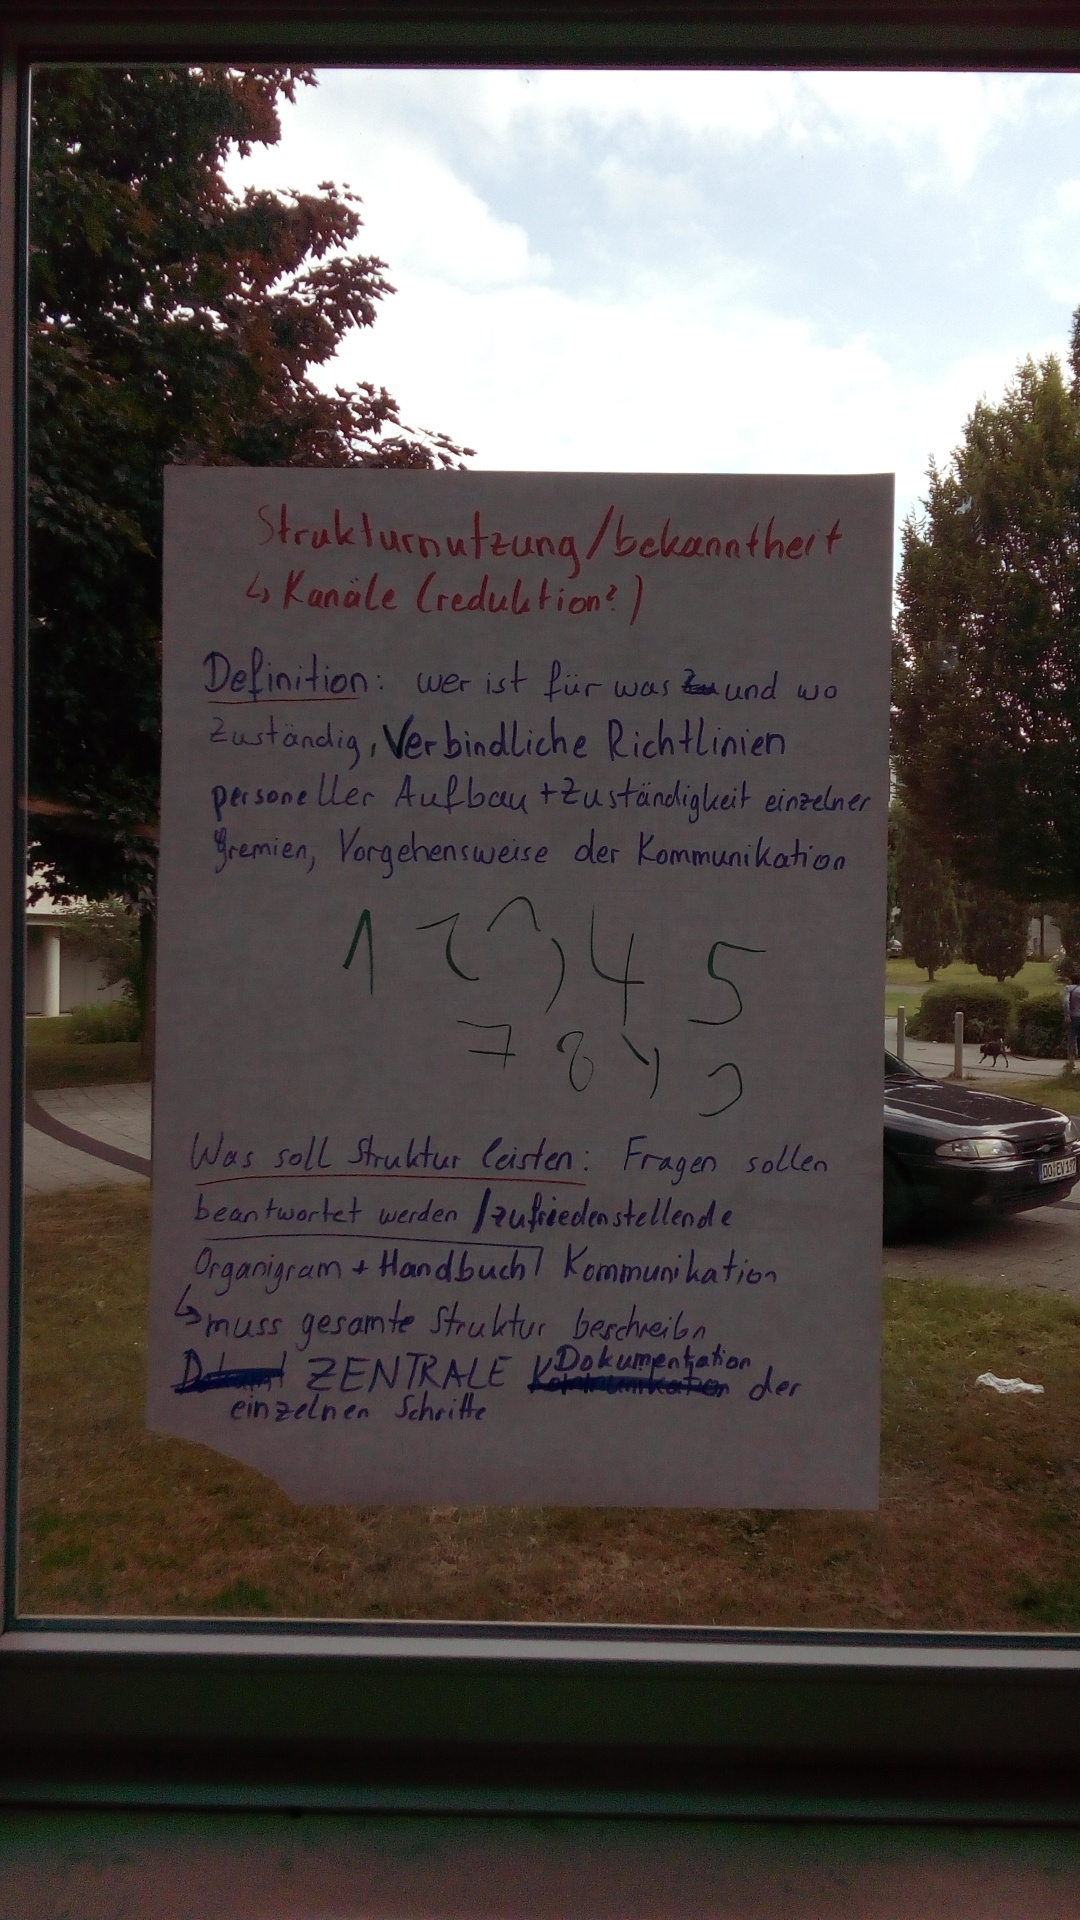 Strukturnutzung/bekanntheit
↳ Kanäle (reduktion?)
Definition: wer ist für was und wo
Zuständig, Verbindliche Richtlinien
personeller Aufbau + Zuständigkeit einzelner
Gremien, Vorgehensweise der Kommunikation
1 2 4 5
7 8
Was soll Struktur leisten: Fragen sollen
beantwortet werden / zufriedenstellende
Organigram + Handbuch / Kommunikation
↳ muss gesamte Struktur beschreibn
ZENTRALE Dokumentation der
einzelnen Schritte